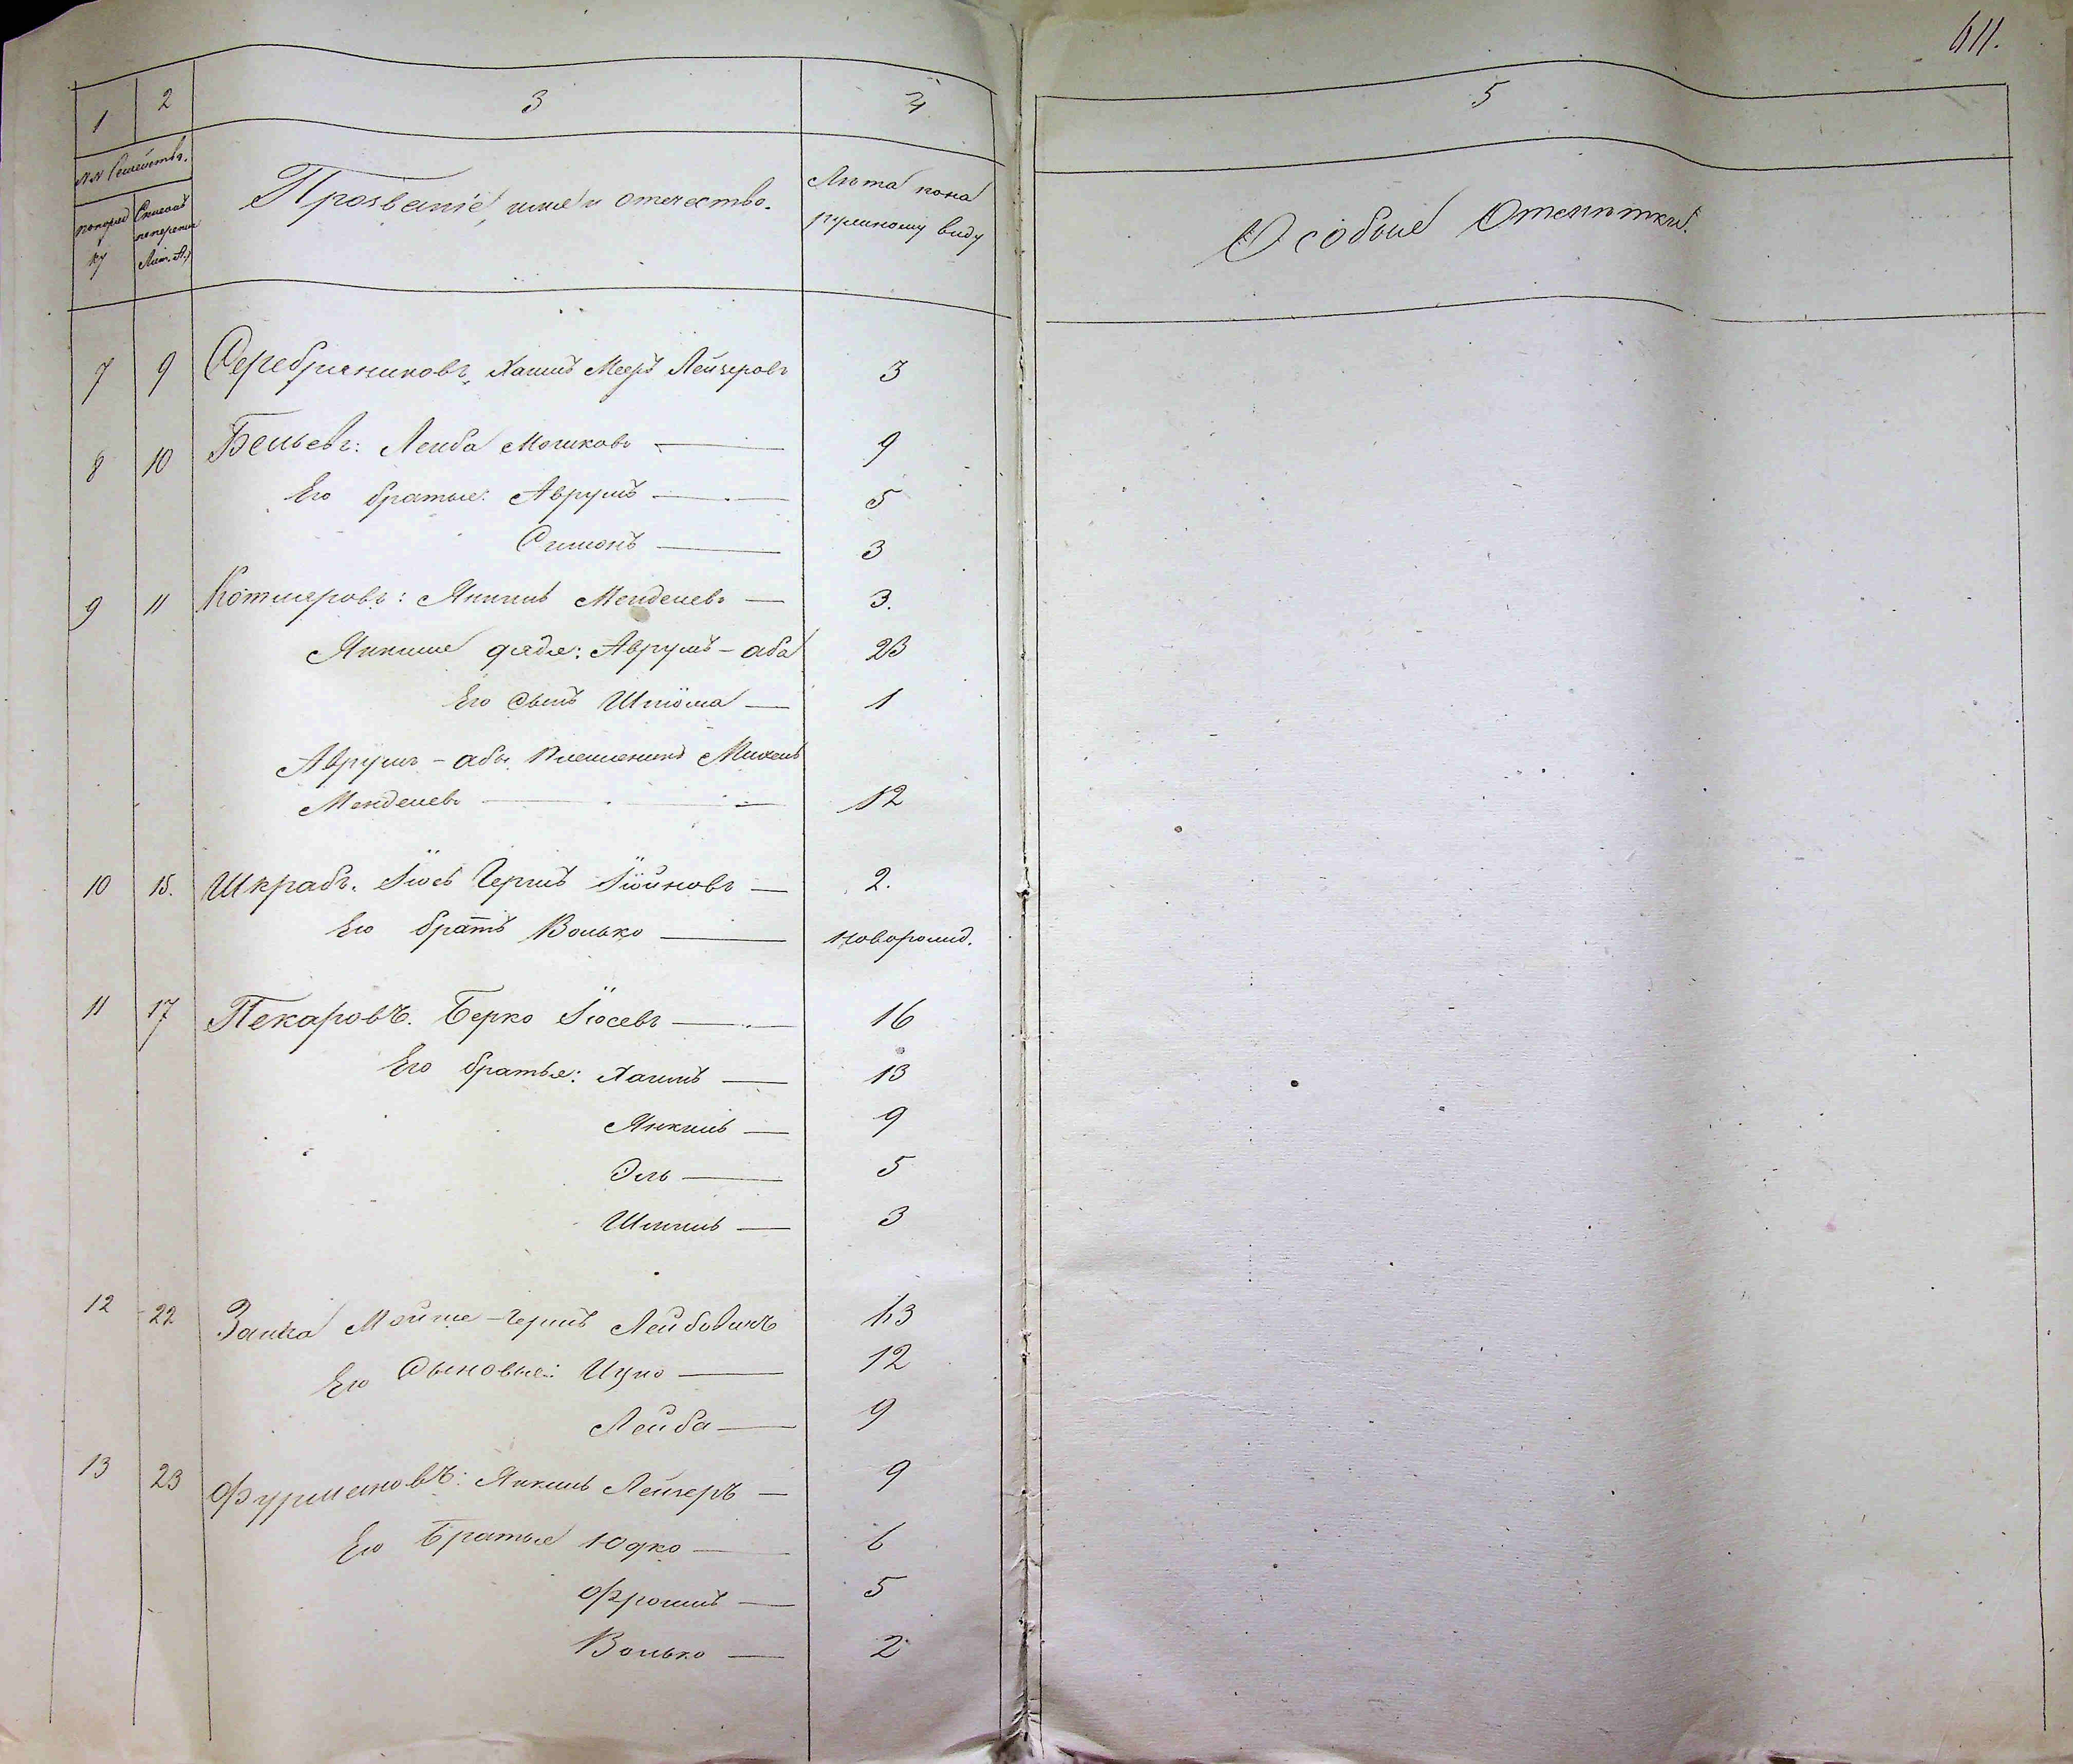 611.
1 2 3 4 5
№№ Семействъ.
попорядку
Списокъ поперепи Лит. А.
Прозваніе, имя и отечество.
Лѣта пона
ружному виду
Особые Отмѣтки.
7 9 Серебряниковъ, Хаимъ Мееръ Лейзеровъ 3
8 10 Бельевъ: Лейба Мошковъ — 9
Его братья: Аврумъ — 5
Симонъ — 3
9 11 Котляровъ: Янкель Менделевъ — 3.
Янкиля дядя: Аврумъ-аба 23
Его Сынъ Шлiома — 1
Аврумъ-абы Племеникъ Михель
Менделевъ — 12
10 15. Шкрабъ. Іось Гершъ Іойновъ — 2.
Его братъ Волько — новорожд.
11 17 Пекаровъ. Берко Іосевъ — 16
Его братья: Хаимъ — 13
Янкиль — 9
Эль — 5
Шмиль — 3
12 22 Заика Мойше-Гершъ Лейбовичъ 43
Его Сыновья: Ицко — 12
Лейба — 9
13 23 Фурмановъ: Янкиль Лейзеръ — 9
Его Братья Юдко — 6
Фроимъ — 5
Волько — 2